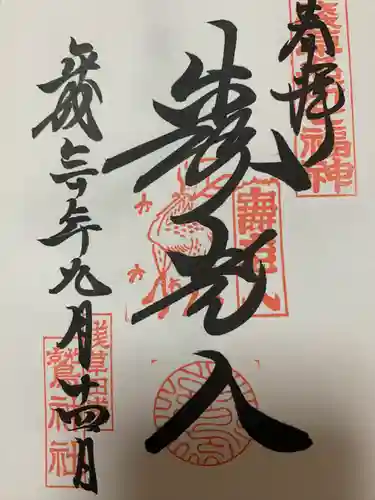 奉拝
浅草名所七福神
寿老人
壽老人
三年九月十四日
浅草田甫
鷲神社